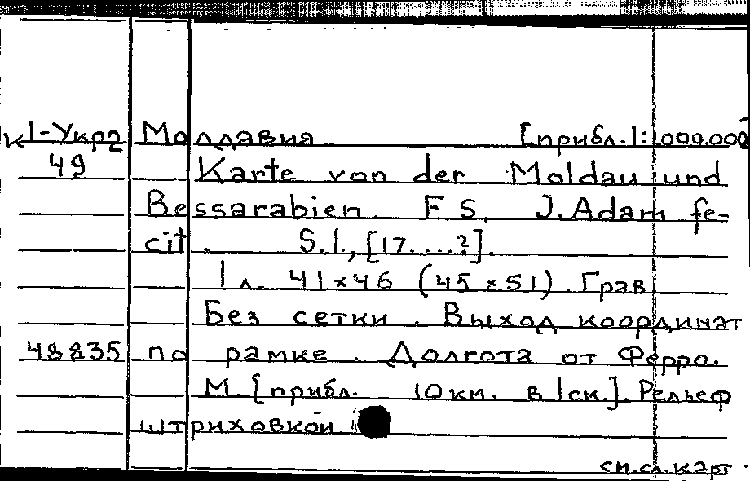 К1-Укр2 Молдавия [прибл. 1:1.000.000
49 Karte von der Moldau und
Bessarabien. F. S. J. Adam fe-
cit. S.l., [17....?].
1 л. 41×46 (45×51). Грав
Без сетки. Выход координат
48835 по рамке. Долгота от Ферро.
М. [прибл. 10 км. в 1 см.]. Рельеф
штриховкой
см. сл. карт.